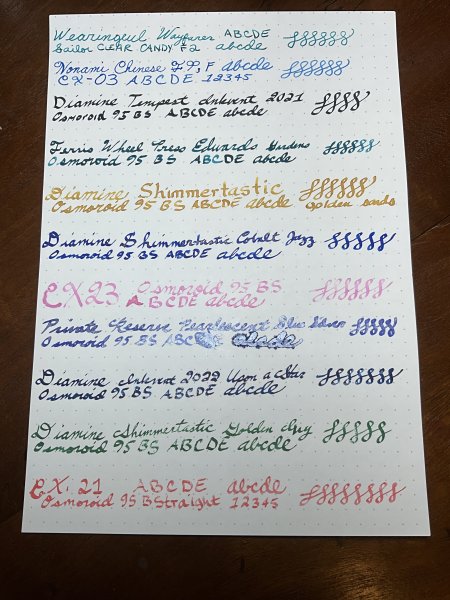 Wearingeul Wayfarer ABCDE
Sailor CLEAR CANDY F2 abcde
Nonami Chinese F.P, F abcde
EX-03 ABCDE 12345
Diamine Tempest Inkvent 2021
Osmoroid 95 BS ABCDE abcde
Ferris Wheel Press Edwards Gardens
Osmoroid 95 BS ABCDE abcde
Diamine Shimmertastic
Osmoroid 95 BS ABCDE abcde Golden Sands
Diamine Shimmertastic Cobalt Jazz
Osmoroid 95 BS ABCDE abcde
EX23 Osmoroid 95 BS
ABCDE abcde
Private Reserve Pearlescent Blue Silver
Osmoroid 95 BS ABC
Diamine Inkvent 2022 Upon a Star
Osmoroid 95 BS ABCDE abcde
Diamine Shimmertastic Golden Ivy
Osmoroid 95 BS ABCDE abcde
EX. 21 ABCDE abcde
Osmoroid 95 BStraight 12345